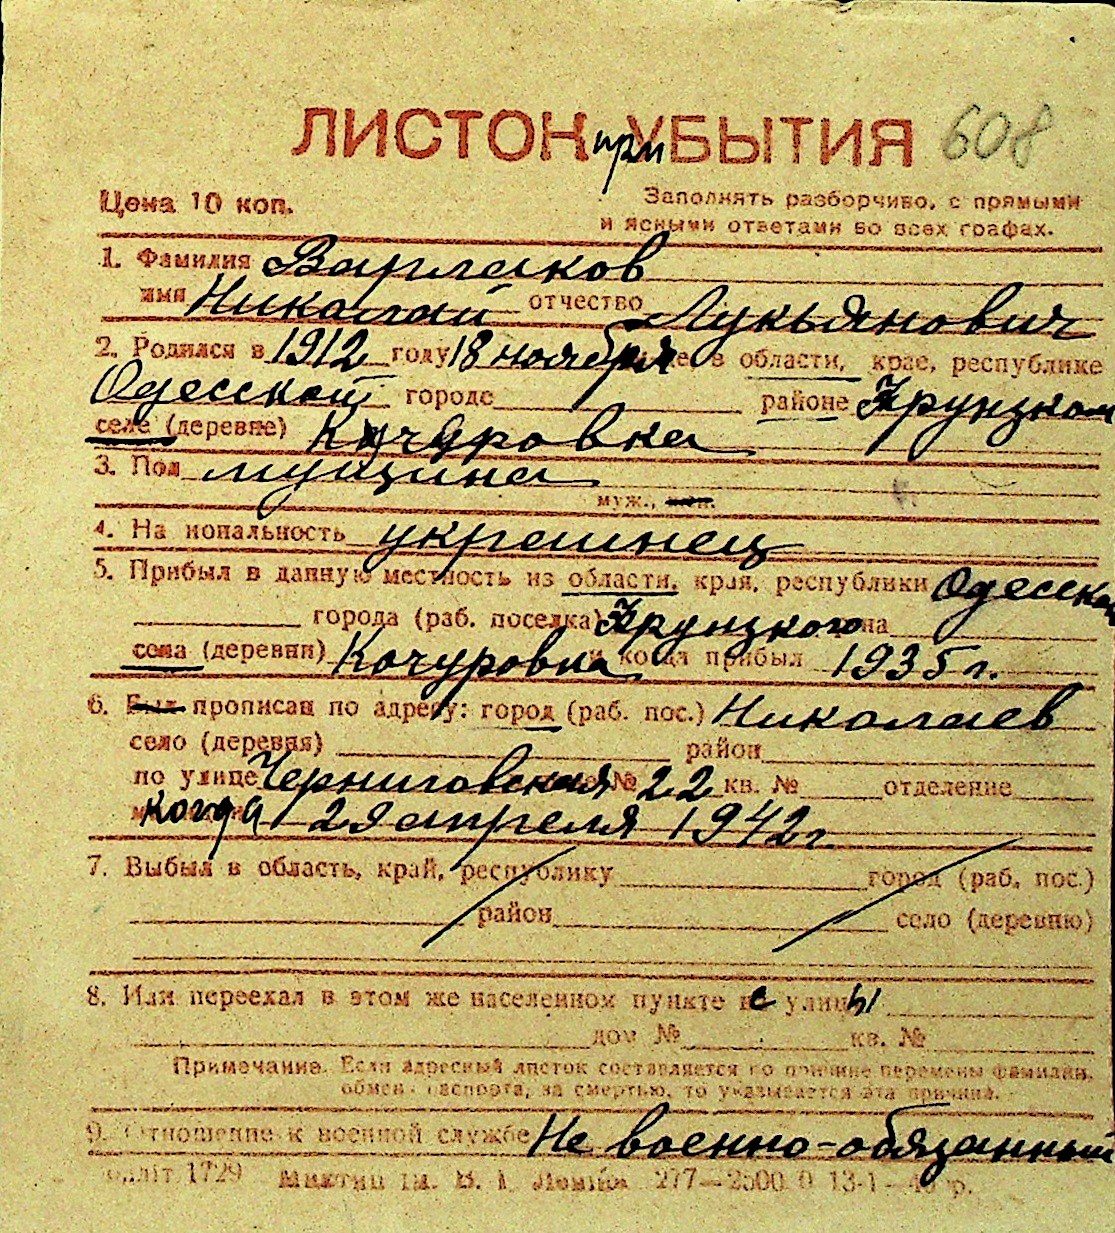 ЛИСТОК при УБЫТИЯ 608
Цена 10 коп.
Заполнять разборчиво, с прямыми
и ясными ответами во всех графах.
1. Фамилия Варлаков
имя Николай отчество Лукьянович
2. Родился в 1912 году 18 ноября в области, крае, республике
Одесской городе районе Фрунзком
селе (деревне) Качуровка
3. Пол мущина
муж., жен.
4. На нональность украинец
5. Прибыл в данную местность из области, края, республики Одесской
города (раб. поселка) Фрунзкого на
села (деревни) Качуровка и когда прибыл 1935 г.
6. Был прописан по адресу: город (раб. пос.) Николаев
село (деревня) район
по улице Черниговская № 22 кв. № отделение
когда 29 апреля 1942 г.
7. Выбыл в область, край, республику город (раб. пос.)
район село (деревню)
8. Или переехал в этом же населенном пункте с улицы
дом № кв. №
Примечание. Если адресный листок составляется по причине перемены фамилии,
обмен паспорта, за смертью, то указывается эта причина.
9. Отношение к военной службе Не военно-обязанный
1729 ім. В. І. Леніна 277—2500 0 13-1-40 р.